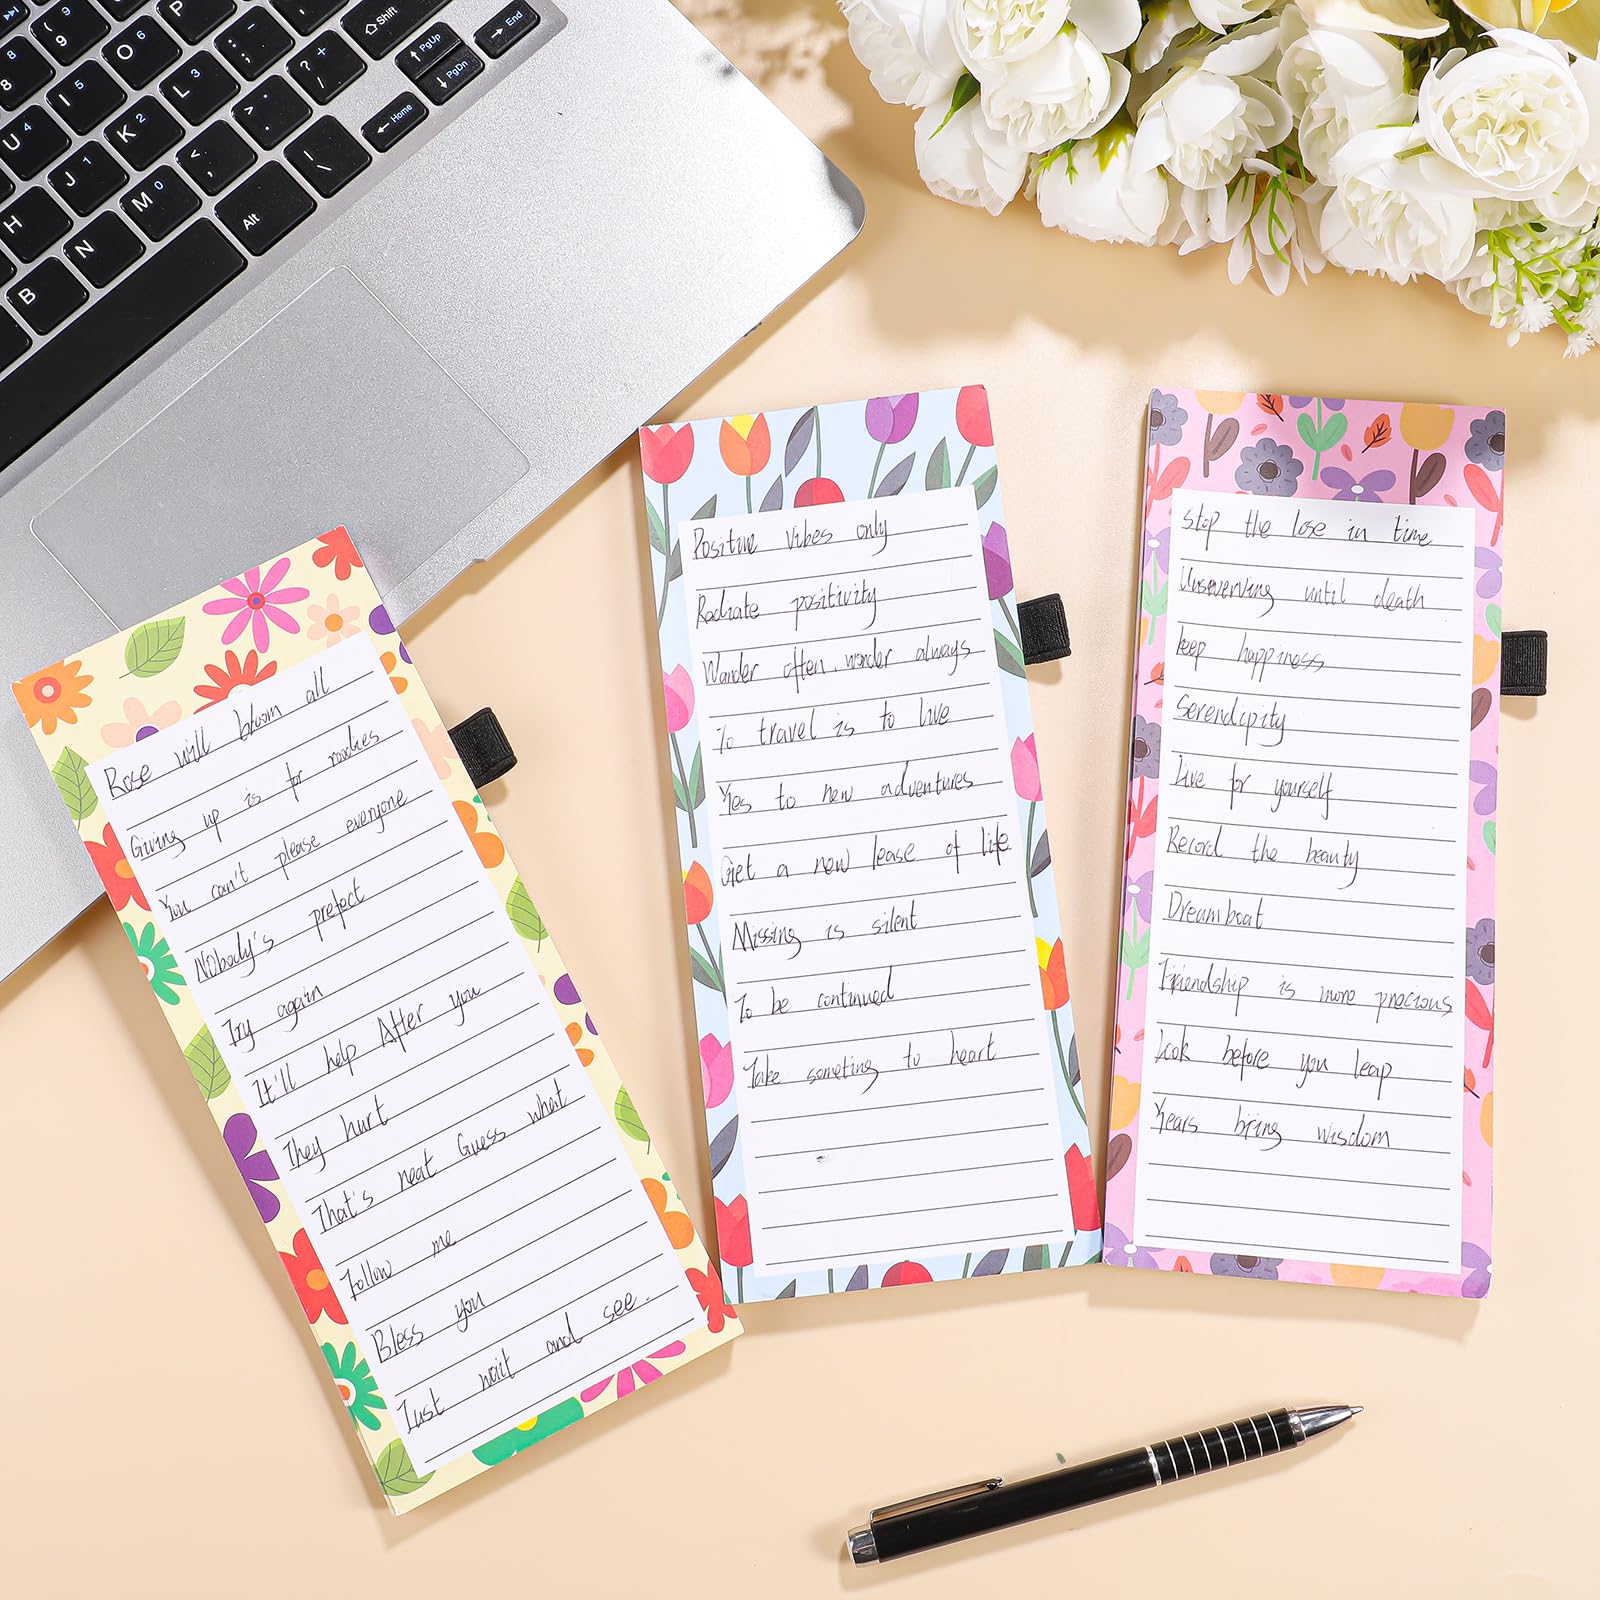 Shift
End
PgUp
PgDn
Home
Alt
9
O 6
8
I 5
L 3
U 4
K 2
J 1
M 0
H
N
B
Rose will bloom all
Giving up is for rookies
You can't please everyone
NObody's prefect
Try again
It'll help After you
They hurt
That's neat Guess what
Follow me
Bless you
Just wait and see.
Positive vibes only
Radiate positivity
Wander often, wonder always
To travel is to live
Yes to new adventures
Get a new lease of life
Missing is silent
To be continued
Take someting to heart
Stop the lose in time
Unswerving until death
keep happiness
Serendipity
Live for yourself
Record the beauty
Dreamboat
Friendship is more precious
Look before you leap
Years bring wisdom